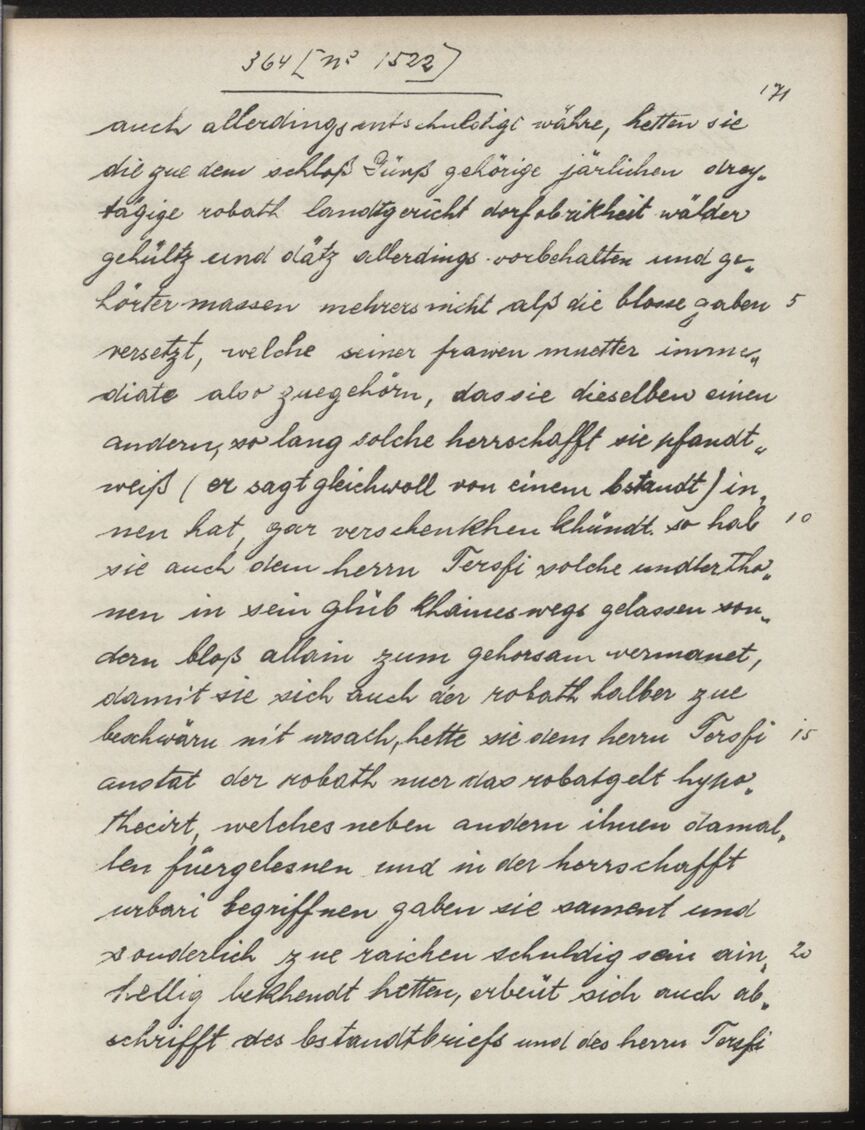 364 [nº 1522]
171
auch allerdings entschuldigt währe, hetten sie
die zue dem schloß Günß gehörige järlichen drey„
tägige robath landtgericht dorfobrikheit wälder
gehültz und dätz allerdings vorbehalten und ge„
hörter massen mehrers nicht alß die blosse gaben 5
versetzt, welche seiner frawen muetter imme„
diate also zuegehörn, das sie dieselben einen
andern, so lang solche herrschafft sie pfandt„
weiß (er sagt gleichwoll von einem bstandt) in„
nen hat, gar verschenkhen khündt. so hab 10
sie auch dem herrn Tersfi solche undtertho„
nen in sein glüb khaineswegs gelassen son„
dern bloß allain zum gehorsam vermanet,
damit sie sich auch der robath halber zue
beschwärn nit ursach, hette sie dem herrn Tersfi 15
anstat der robath nuer das robatgelt hypo„
thecirt, welches neben andern ihnen damal„
len füergelesnen und in der herrschafft
urbari begriffnen gaben sie sament und
sonderlich zue raichen schuldig sein ain„ 20
hellig bekhendt hetten, erbeüt sich auch ab„
schrifft des bstandtbriefs und des herrn Tersfi